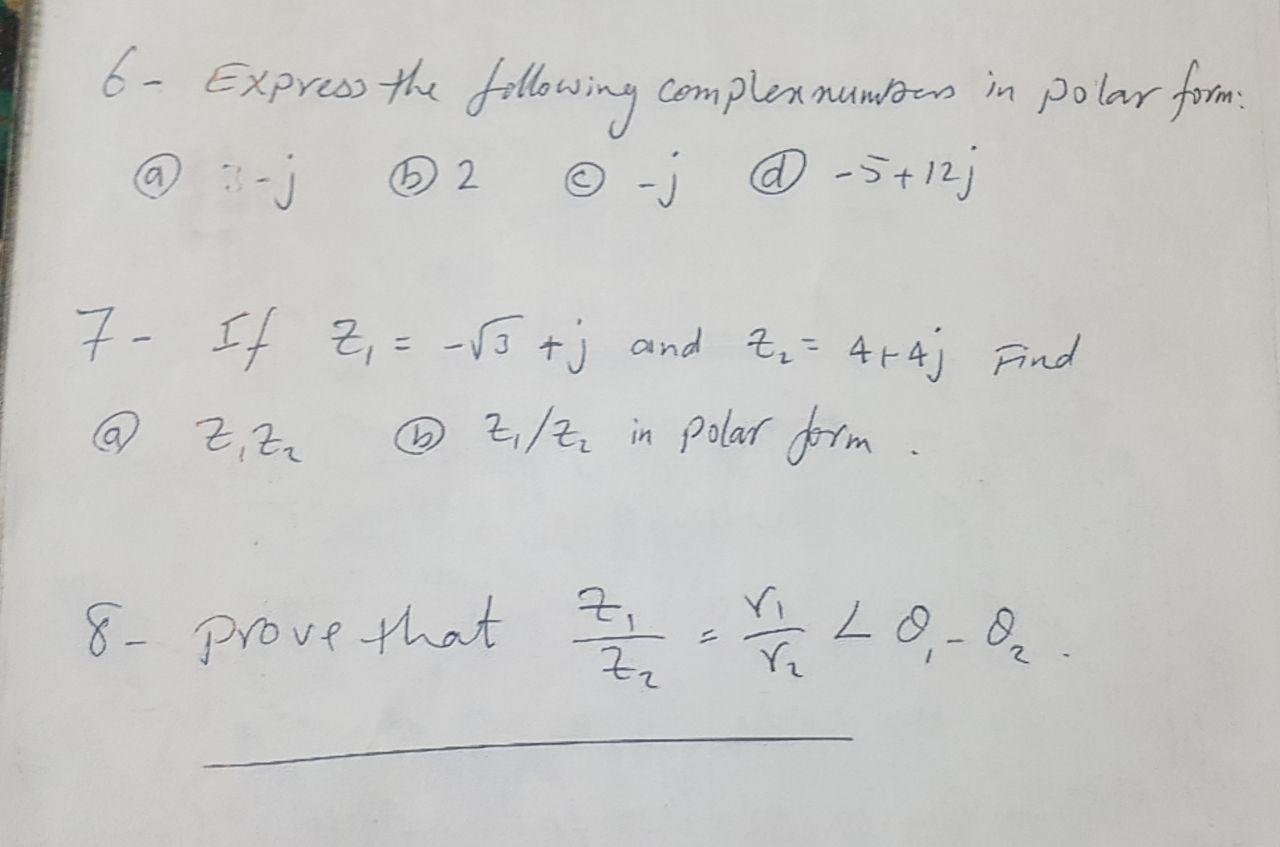 6- Express the following complex numbers in polar form:
ⓐ 3-j ⓑ 2 ⓒ -j ⓓ -5+12j
7- If z₁ = -√3 +j and z₂ = 4+4j Find
ⓐ z₁z₂ ⓑ z₁/z₂ in polar form.
8- prove that z₁/z₂ = r₁/r₂ ∠ θ₁-θ₂.